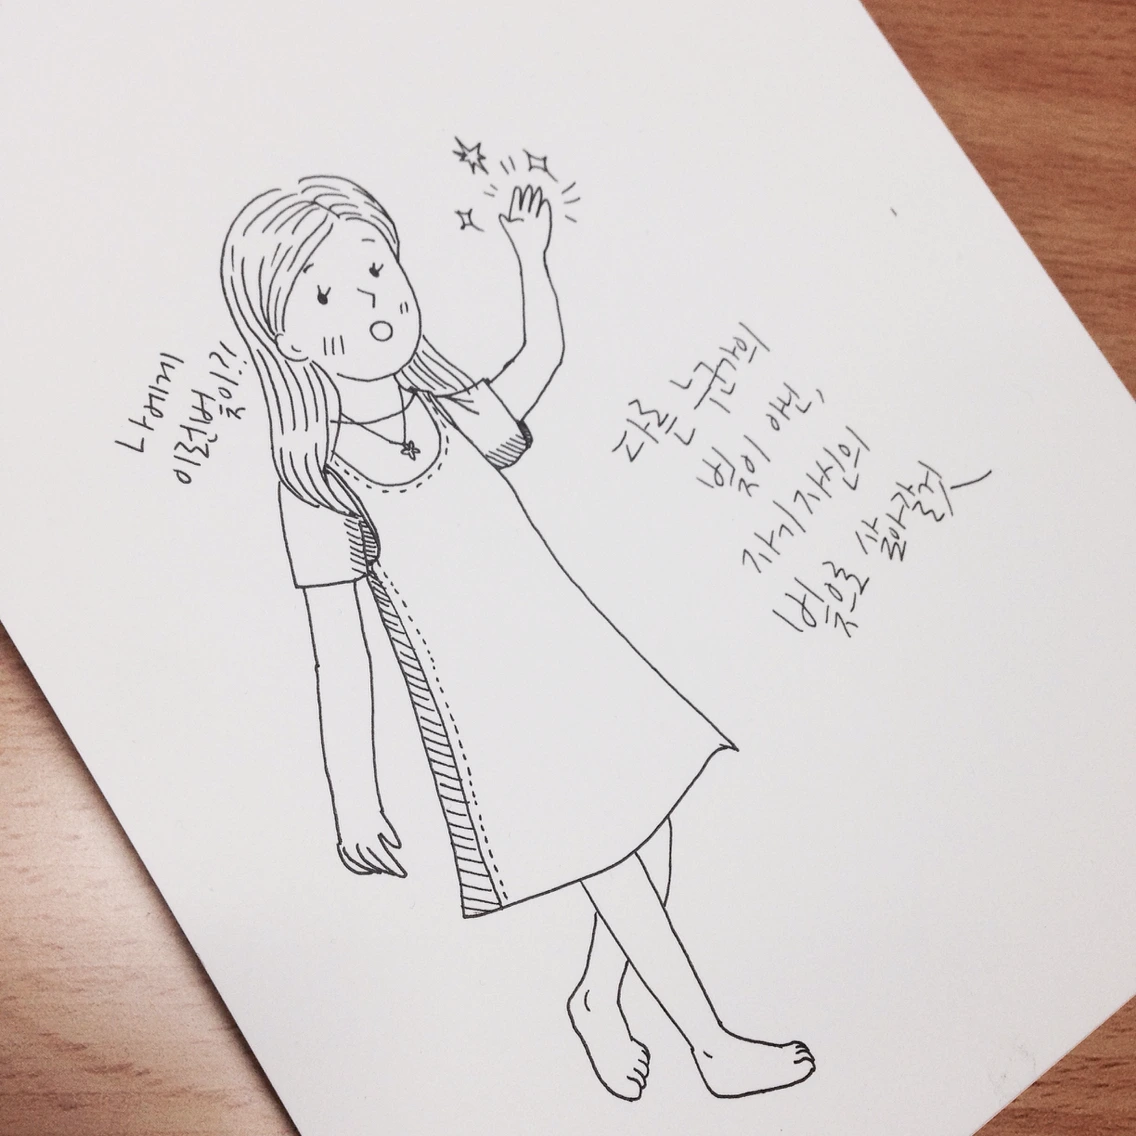 나에게
이런 빛이?!
다른 누군가의
빛이 아닌,
자기 자신의
빛으로 살아갈 것